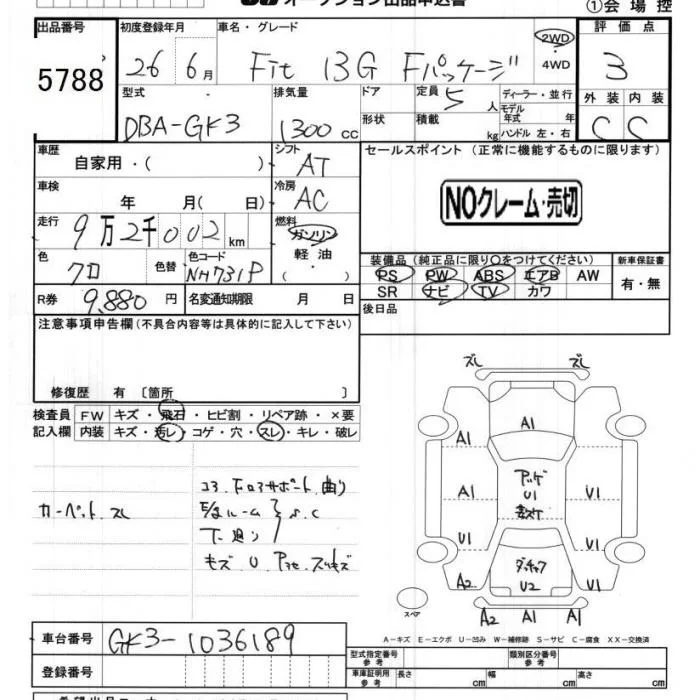 オークション出品申込書
①会場控
出品番号 初度登録年月 車名・グレード 評価点
5788 26 6月 Fit 13G Fパッケージ 2WD ・ 4WD 3
型式 排気量 ドア 定員 5人 ディーラー・並行 外装 内装
DBA-GK3 1300cc 形状 積載 kg モデル年式 年 ハンドル 左・右 C C
車歴 自家用・( ) シフト AT セールスポイント (正常に機能するものに限ります)
車検 年 月(日) 冷房 AC NOクレーム・売切
走行 9万2千002km 燃料 ガソリン 軽油 ・( )
色 クロ 色替 色コード NH731P
装備品 (純正品に限り○をつけてください) 新車保証書
PS PW ABS エアB AW 有・無
SR ナビ TV カワ
R券 9,880円 名変通知期限 月 日 後日品
注意事項申告欄 (不具合内容等は具体的に記入して下さい)
修復歴 有 〔箇所 〕
検査員 FW キズ・飛石・ヒビ割・リペア跡・×要
記入欄 内装 キズ・汚レ・コゲ・穴・スレ・キレ・破レ
カーペット スレ
下廻り
ズレ ズレ
A1 A1
A1 U1
U1 U1
A2 U2 A1
A2 A1 A1
U1
スペア
A−キズ E−エクボ U−凹み W−補修跡 S−サビ C−腐食 XX−交換済
車台番号 GK3-1036189
型式指定番号 参考 類別区分番号 参考
登録番号
車庫証明用 参考 長さ cm 幅 cm 高さ cm